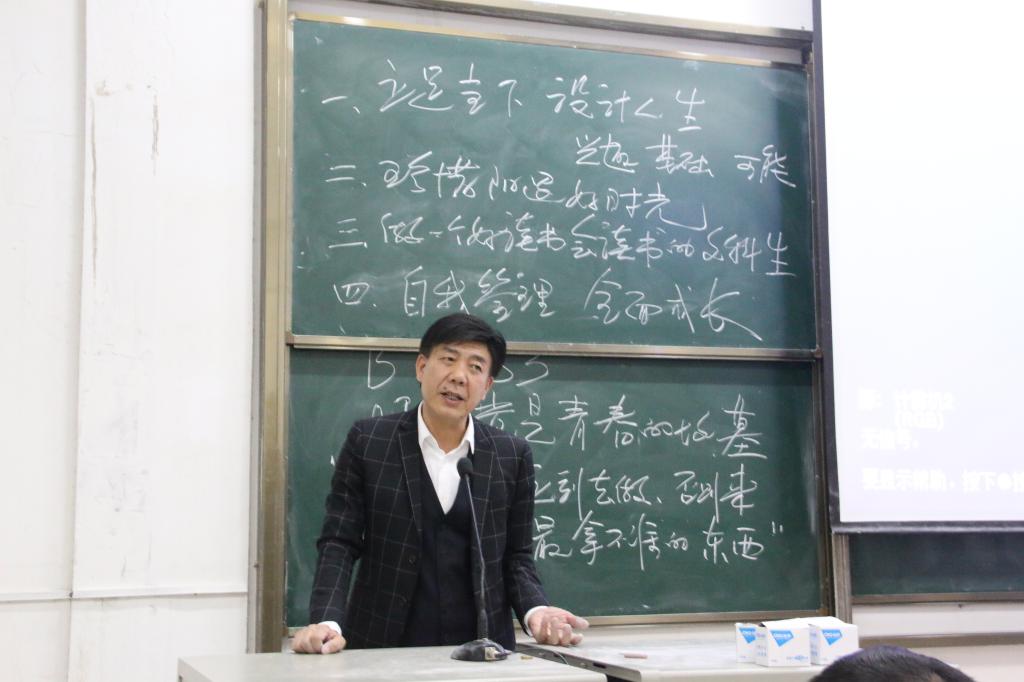 一、立足当下 设计人生
兴趣 基础 可能
三、珍惜阶段好时光
三、做一个好读书会读书的文科生
四、自我管理 全面成长
是青春的坟墓
到去做、否则来
最拿不准的东西”
无信号。
要显示帮助，按下